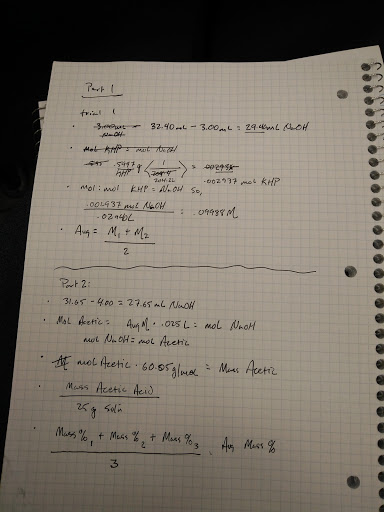 Part 1
trial 1
· 3.00mL 32.40mL - 3.00mL = 29.40mL NaOH
NaOH
· mol KHP = mol NaOH
.5997 g KHP (1/204.22) = .002937 mol KHP
· mol:mol KHP = NaOH so,
.002937 mol NaOH / .0294L = .09988M
· Avg = M1 + M2 / 2
Part 2:
· 31.65 - 4.00 = 27.65 mL NaOH
· Mol Acetic = Avg M · .025L = mol NaOH
mol NaOH = mol Acetic
· mol Acetic · 60.05g/mol = Mass Acetic
· Mass Acetic Acid / 25g soln
· Mass%1 + Mass%2 + Mass%3 / 3 = Avg Mass%